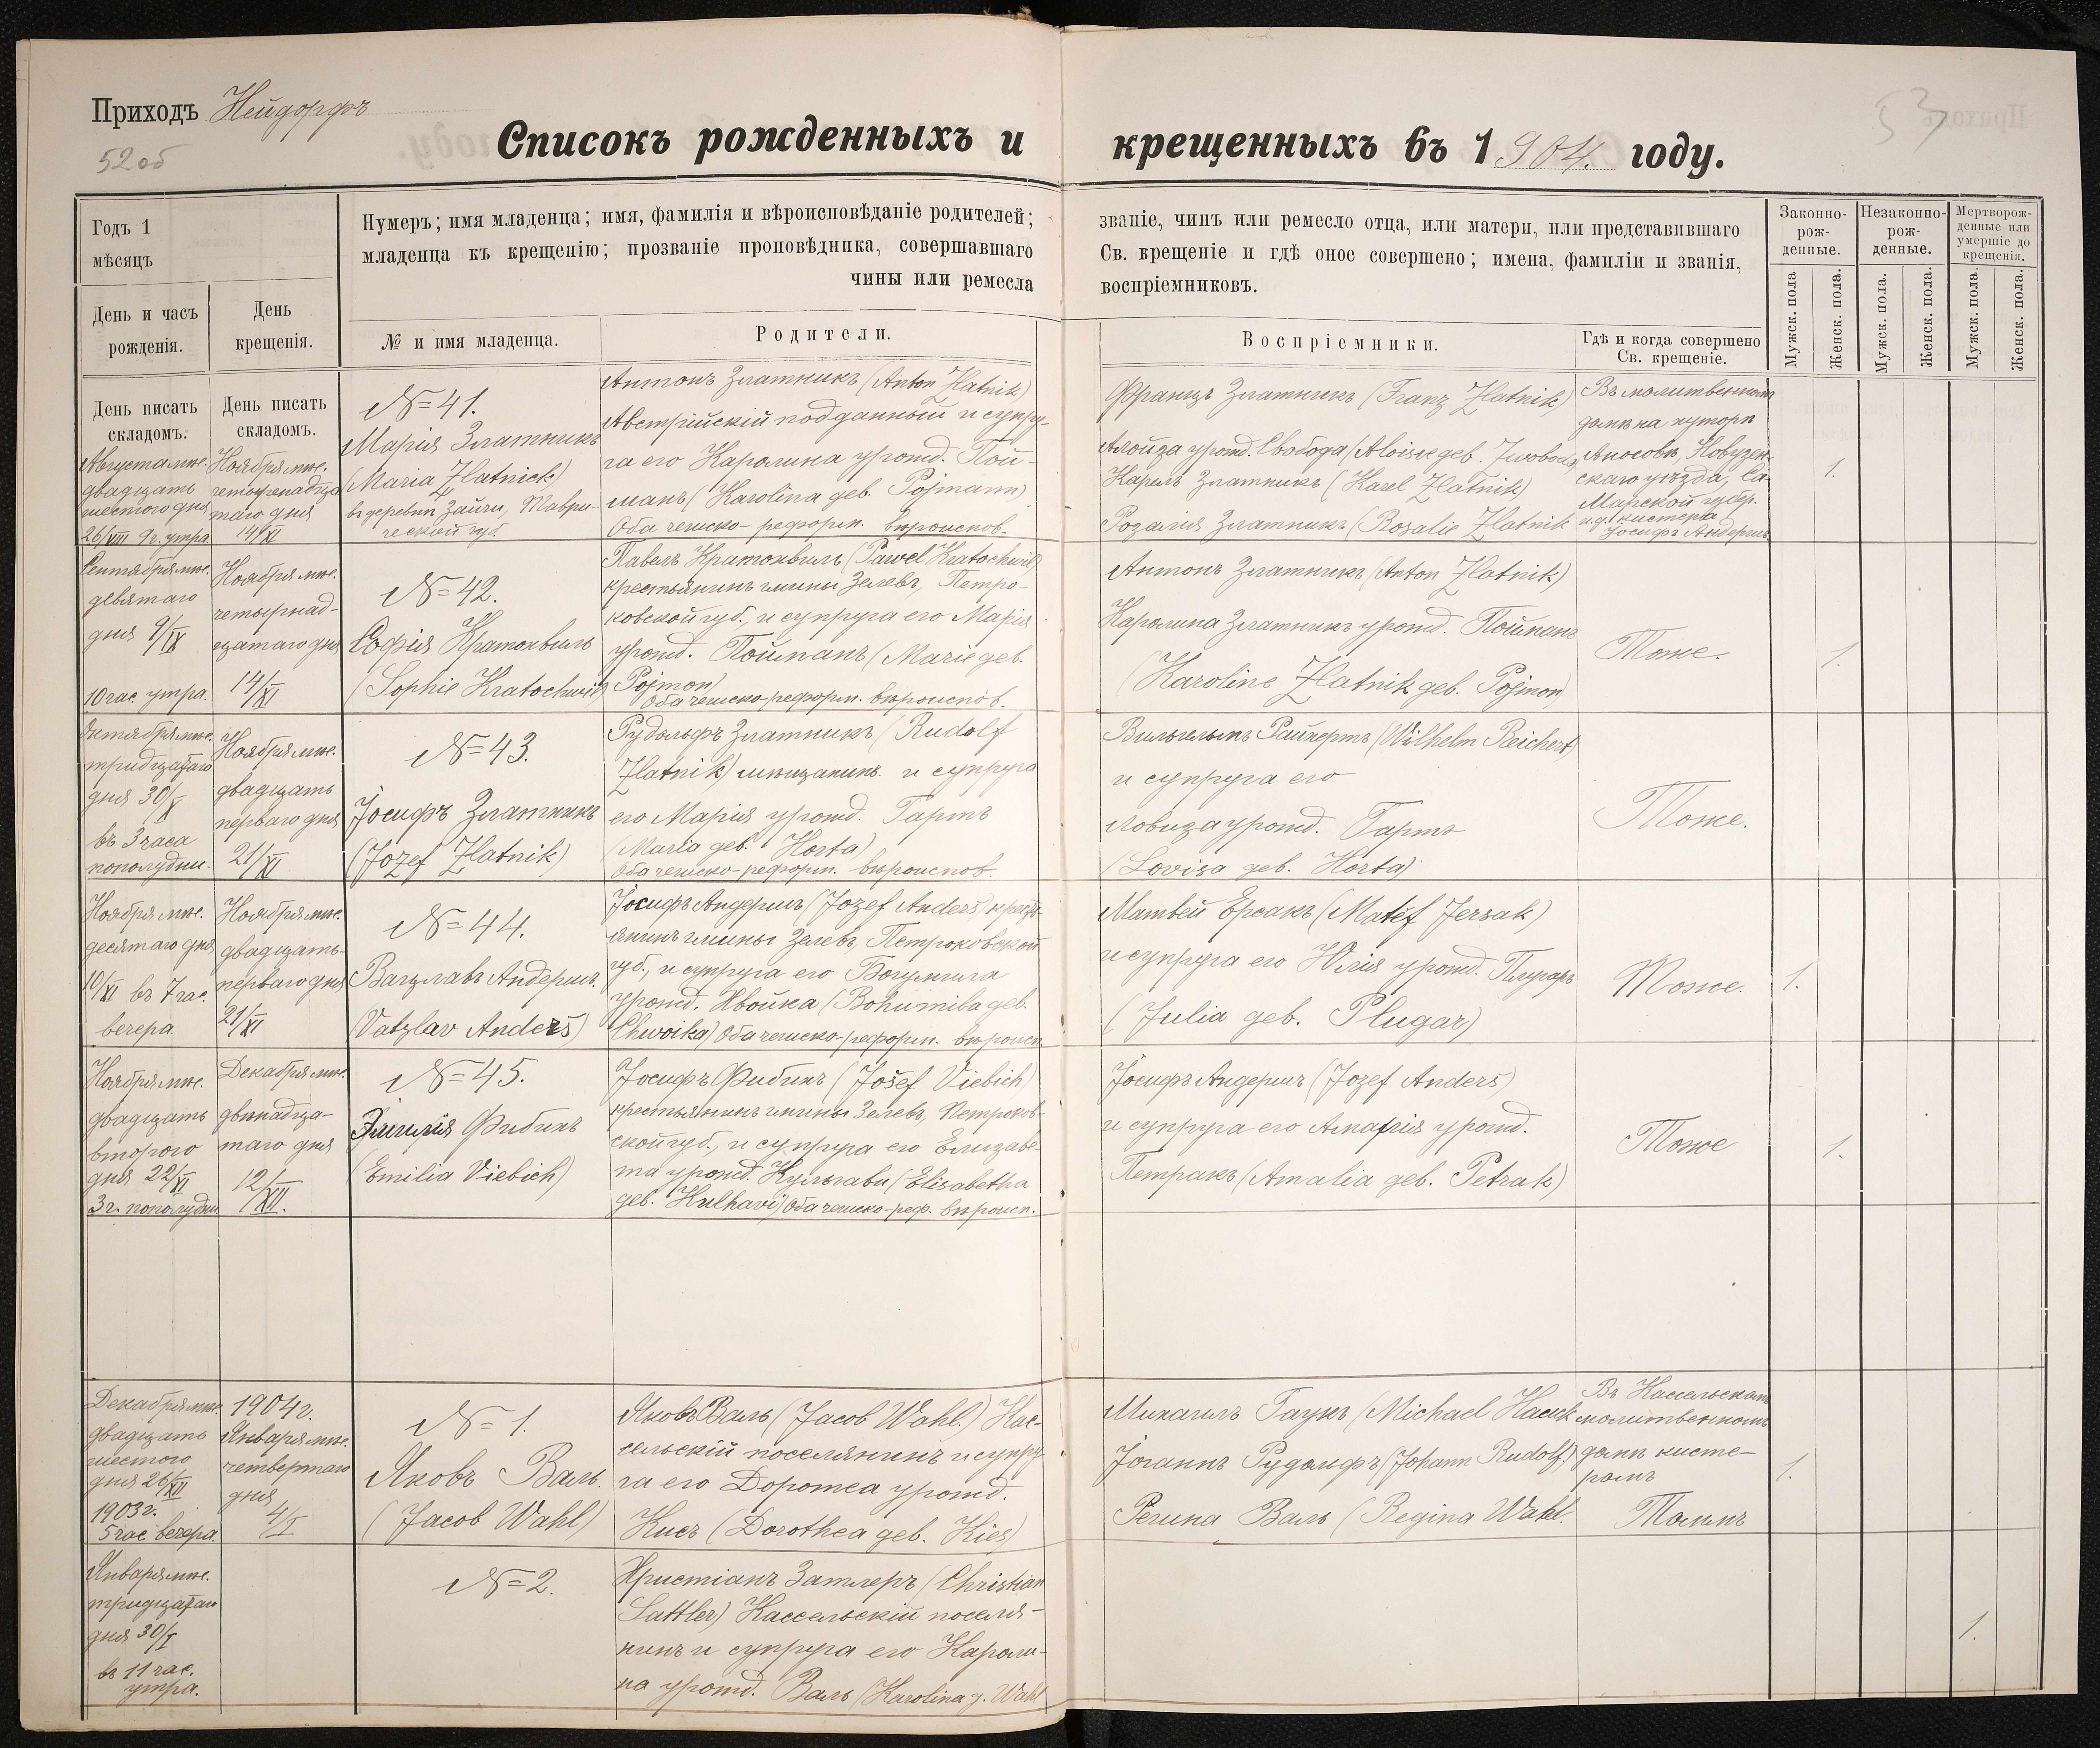 Приходъ Нейдорфъ
52об
53
Списокъ рожденныхъ и крещенныхъ въ 1904. году.
Годъ 1
мѣсяцъ
День и часъ
рожденія.
День
крещенія.
Нумеръ; имя младенца; имя, фамилія и вѣроисповѣданіе родителей;
младенца къ крещенію; прозваніе проповѣдника, совершавшаго
чины или ремесла
№ и имя младенца.
Родители.
званіе, чинъ или ремесло отца, или матери, или представившаго
Св. крещеніе и гдѣ оное совершено; имена, фамиліи и званія,
воспріемниковъ.
Воспріемники.
Гдѣ и когда совершено
Св. крещеніе.
Законно-
рож-
денные.
Незаконно-
рож-
денные.
Мертворож-
денные или
умершіе до
крещенія.
Мужск. пола
Женск. пола.
Мужск. пола.
Женск. пола.
Мужск. пола.
Женск. пола.
День писать
складомъ.
День писать
складомъ.
Августа мѣс.
двадцать
шестого дня
26/VIII 9ч. утра
Ноября мѣс.
четырнадца
таго дня
14/XI
№ 41.
Марія Златникъ
(Maria Zlatnick)
въ деревни Зайчи, Таври-
ческой губ.
Антонъ Златникъ (Anton Zlatnik)
Австрійскій подданный и супру-
га его Каролина урожд. Пой-
манъ (Karolina geb. Pojmann)
Оба чешско-реформ. вѣроиспов.
Францъ Златникъ (Franz Zlatnik)
Алойза урожд. Свобода (Aloisie geb. Zwoboda)
Карлъ Златникъ (Karel Zlatnik)
Розалія Златникъ (Rosalie Zlatnik
Въ молитвенномъ
домѣ на хуторѣ
Новузен-
скаго уѣзда, Са-
марской губер.
и.д. кистера
Іосифъ Андершъ.
1.
Сентября мѣс.
девятаго
дня 9/IX
10 час. утра.
Ноября мѣс.
четырнад-
цатаго дня
14/XI
№ 42.
Софія Кратохвиль
(Sophie Kratochwil)
Павелъ Кратохвиль (Pawel Kratochwil)
крестьянинъ гмины Зелевъ, Петро-
ковской губ., и супруга его Марія
урожд. Пойманъ (Marie geb.
Pojmon)
Оба чешско-реформ. вѣроиспов.
Антонъ Златникъ (Anton Zlatnik)
Каролина Златникъ урожд. Пойманъ
(Karoline Zlatnik geb. Pojmon)
Тоже.
1.
Октября мѣс.
тридцатаго
дня 30/X
въ 3 часа
пополудни.
Ноября мѣс.
двадцать
перваго дня
21/XI
№ 43.
Іосифъ Златникъ
(Jozef Zlatnik)
Рудольфъ Златникъ (Rudolf
Zlatnik) мѣщанинъ и супруга
его Марія урожд. Гартъ
(Maria geb. Horta)
Оба чешско-реформ. вѣроиспов.
Вильгельмъ Райхертъ (Wilhelm Reichert)
и супруга его
Ловиза урожд. Гартъ
(Loviza geb. Horta)
Тоже.
Ноября мѣс.
десятаго дня
10/XI въ 7 час.
вечера
Ноября мѣс.
двадцать-
перваго дня
21/XI
№ 44.
Вацлавъ Андершъ.
(Vatzlav Anderš)
Іосифъ Андершъ (Jozef Anderš) кресть-
янинъ гмины Зелевъ, Петроковской
губ., и супруга его Богумила
урожд. Хвойка (Bohumila geb.
Chwoika) Оба чешско-реформ. вѣроисп.
Матвей Ерсакъ (Matěf Jersak)
и супруга его Юлія урожд. Плугаръ
(Julia geb. Plugar)
Тоже.
1.
Ноября мѣс.
двадцать
второго
дня 22/XI
3 ч. пополудни
Декабря мѣс.
двѣнадца-
таго дня
12/XII.
№ 45.
Эмилія Фибихъ
(Emilia Viebich)
Іосифъ Фибихъ (Jošef Viebich)
крестьянинъ гмины Зелевъ, Петроков-
ской губ., и супруга его Елизаве-
та урожд. Кульгави (Elisabetha
geb. Kulhavi) Оба чешско-реф. вѣроисп.
Іосифъ Андершъ (Jozef Anderš)
и супруга его Амалія урожд.
Петракъ (Amalia geb. Petrak)
Тоже
1.
Декабря мѣс.
двадцать
шестого
дня 26/XII
1903г.
5 час вечера.
1904г.
Января мѣс.
четвертаго
дня
4/I
№ 1.
Яковъ Валь.
(Jacob Wahl)
Яковъ Валь (Jacob Wahl.) Кас-
сельскій поселянинъ и супру
га его Доротеа урожд.
Кисъ (Dorothea geb. Kies)
Михаилъ Гаукъ (Michael Hauck
Іоганнъ Рудольфъ (Johann Rudolf)
Регина Валь (Regina Wahl.
Въ Кассельскомъ
молитвенномъ
домѣ кисте-
ромъ
1.
Января мѣс.
тридцатаго
дня 30/I
въ 11 час.
утра.
№ 2.
Христіанъ Затлеръ (Christian
Sattler) Кассельскій поселя-
нинъ и супруга его Кароли-
на урожд. Валь (Karolina g. Wahl
1.